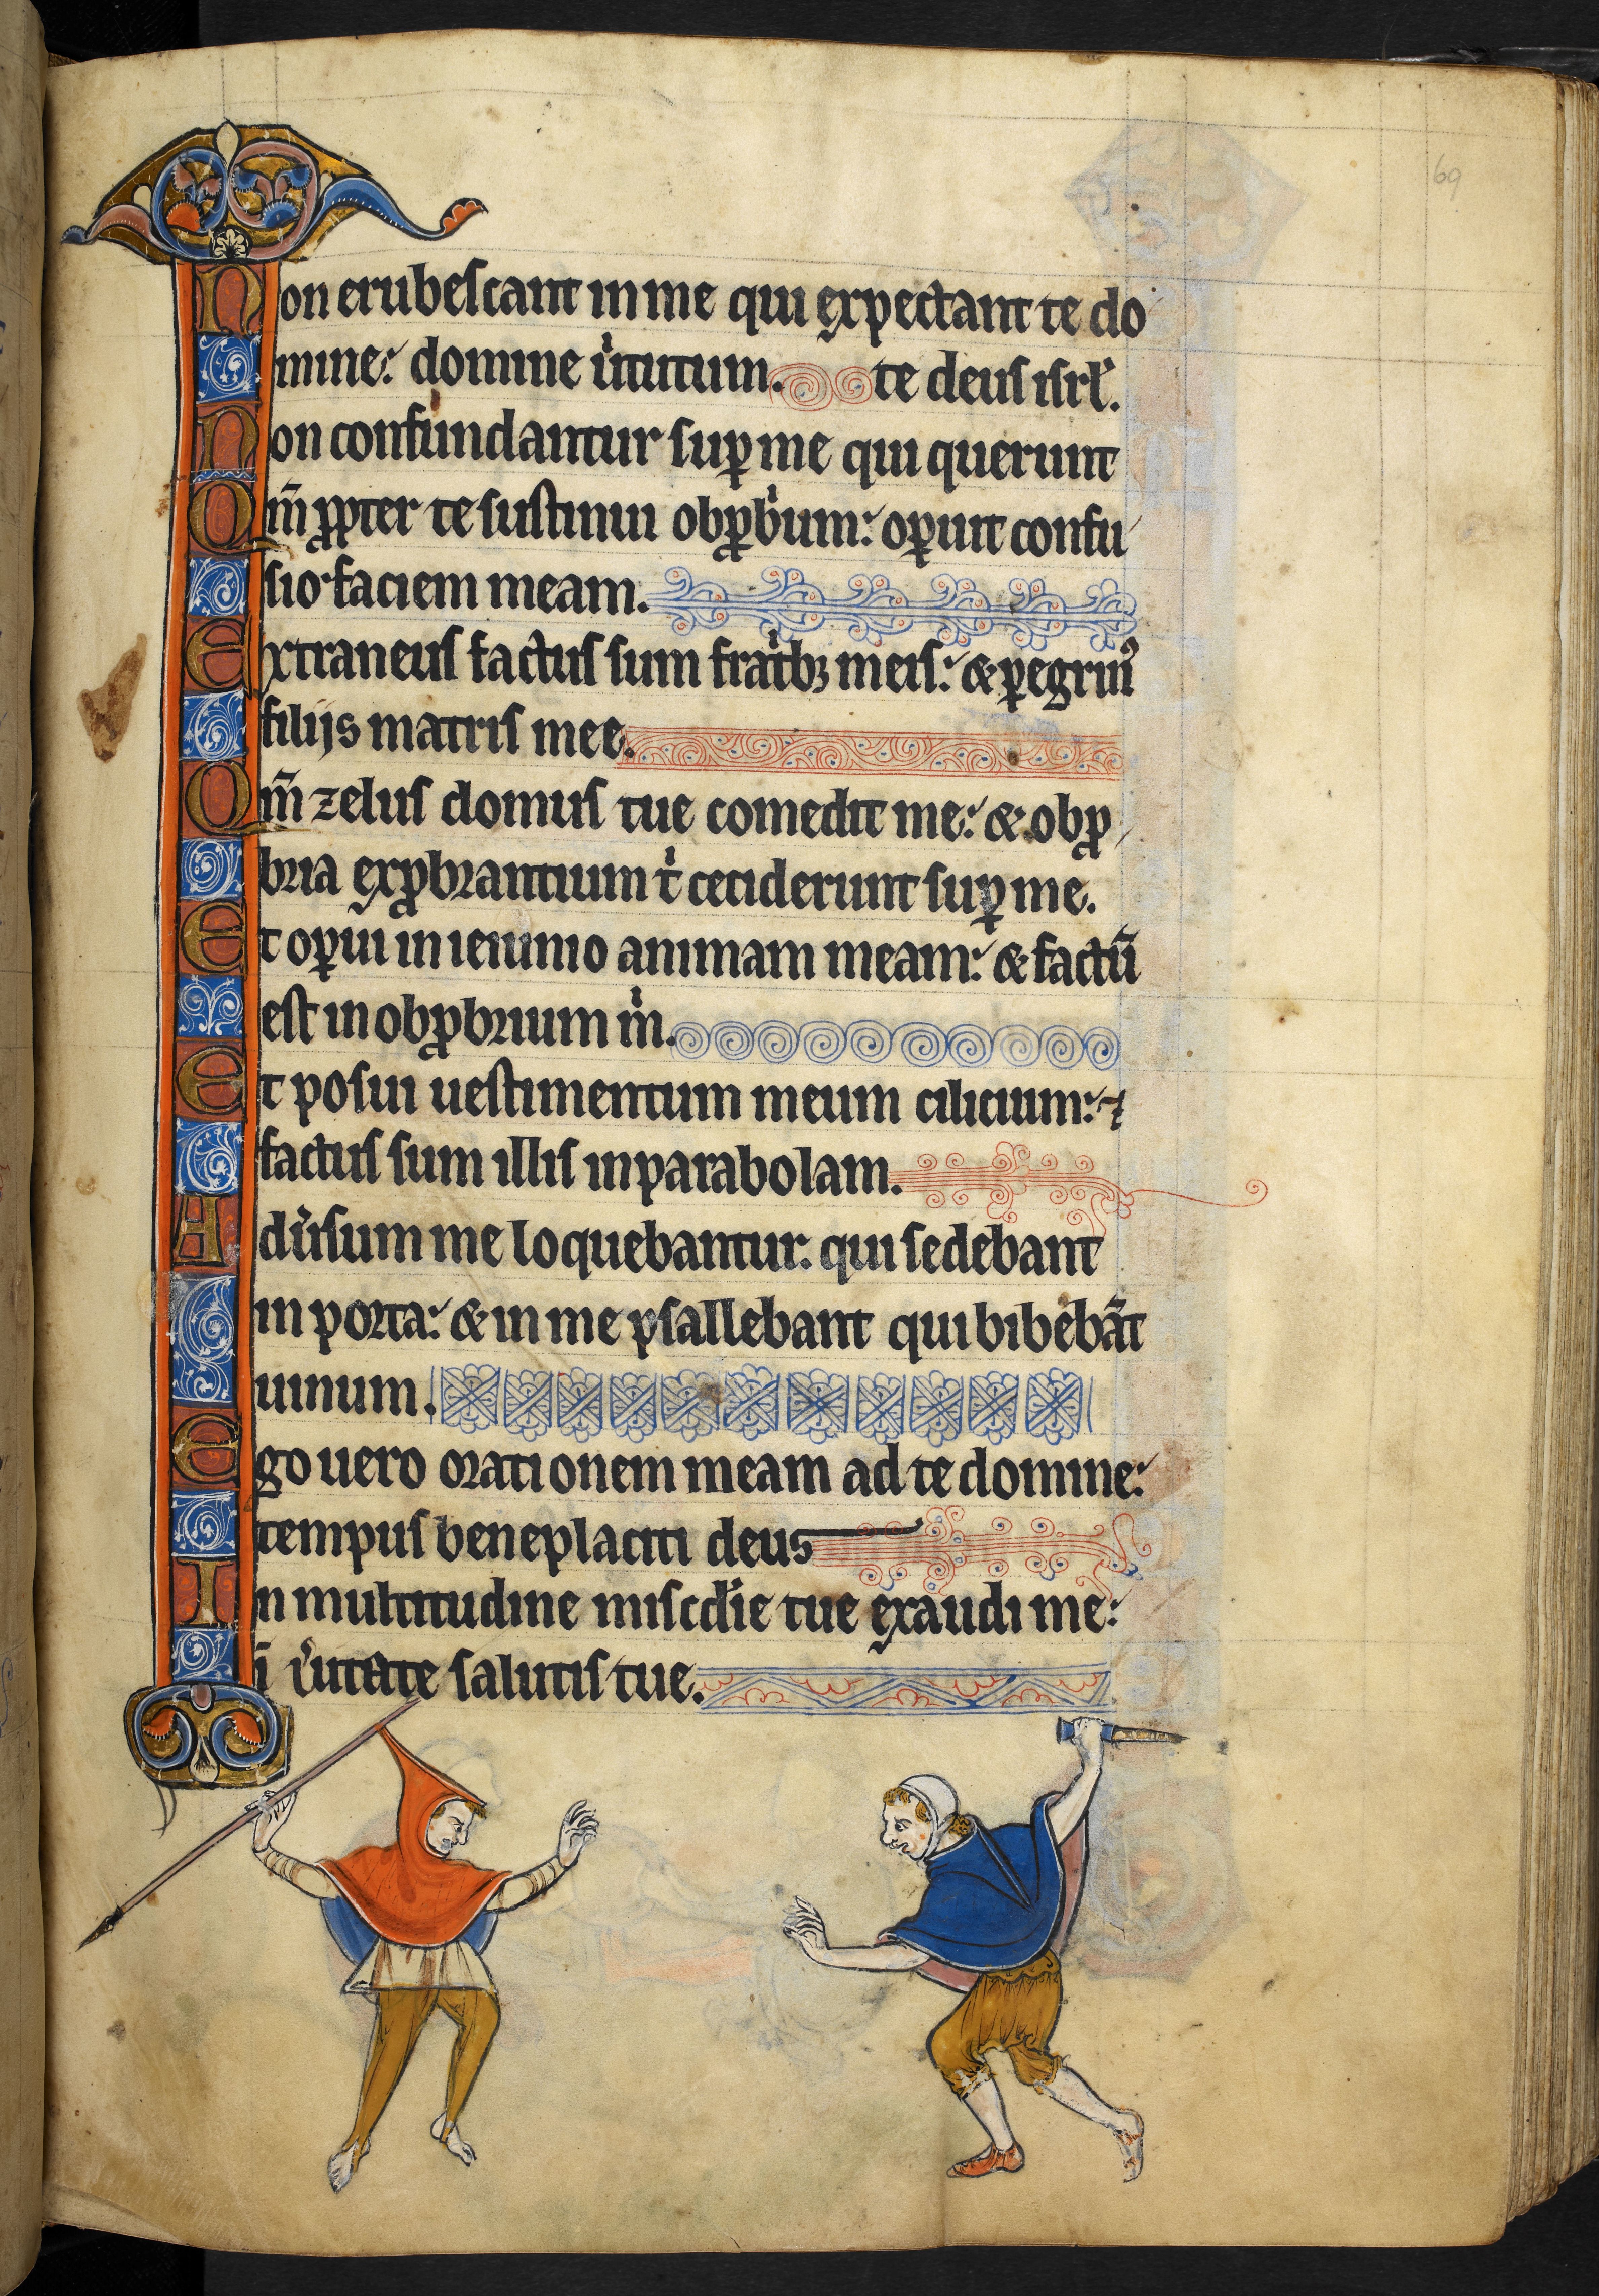 69
Non erubescant in me qui expectant te do
mine: domine u̍tutum. te deus isrl̍.
Non confundantur suꝑ me qui querunt
Qm̄ ꝓpter te sustinui obꝓb̍um: oꝑuit confu
sio faciem meam.
Extraneus factus sum frat̍bꝫ meis: & ꝑegrin᾽
filijs matris mee.
Qm̄ zelus domus tue comedit me: & obꝓ
bria exꝓbrantium t̍ ceciderunt suꝑ me.
Et oꝑui in ieiunio animam meam: & factū
est in obꝓbrium m̍.
Et posui uestimentum meum cilicium: ⁊
factus sum illis in parabolam.
Adu̍sum me loquebantur: qui sedebant
in porta: & in me psallebant qui bibebāt
uinum.
Ego uero orationem meam ad te domine:
tempus beneplaciti deus
In multitudine miscd̍ie tue exaudi me:
ī u̍itate salutis tue.